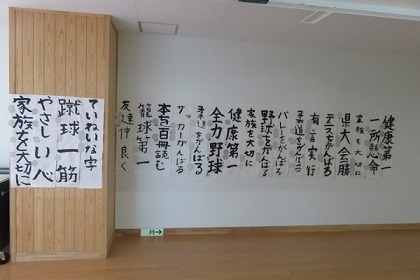 健康第一
一所懸命
家族を大切に
県大会勝
テニスをがんばる
有言実行
柔道をがんばる
バレーをがんばる
野球をがんばる
家族を大切に
健康第一
全力野球
柔道をがんばる
サッカーがんばる
本を百冊読む
籠球第一
友達仲良く
ていねいな字
蹴球一筋
やさしい心
家族を大切に